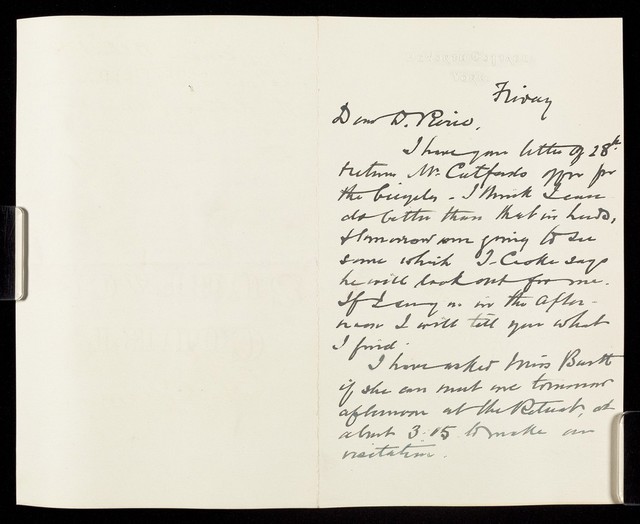 Friday
Dear Dr. Pierce,
I have your letter of 28th.
return Mr. Catford's offer for
the bicycles - I think I can
do better than that in Leeds,
& tomorrow am going to see
some which J. Cooke says
he will look out for me.
If I ring up in the after-
noon I will tell you what
I find.
I have asked Miss Burtt
if she can meet me tomorrow
afternoon at the Retreat, at
about 3.15 to make an
visitation.